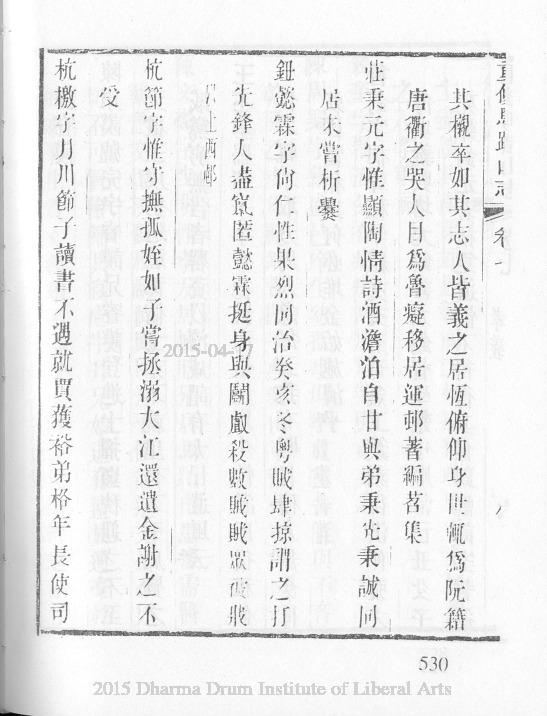 重修馬蹟山志 卷七 八
其櫬卒如其志人皆義之居恆俯仰身世輒爲阮籍
唐衢之哭人目爲魯癡移居運邨著編茗集
莊秉元字惟顯陶情詩酒澹泊自甘與弟秉先秉誠同
居未嘗析爨
鈕懿霖字尙仁性果烈同治癸亥冬粤賊肆掠謂之打
先鋒人盡竄匿懿霖挺身與鬭戲殺數賊賊眾
以上西邨
杭節字惟守撫孤姪如子嘗拯溺大江還遺金謝之不
受
杭檄字月川節子讀書不遇就賈獲裕弟格年長使司
530
2015-04-17
2015 Dharma Drum Institute of Liberal Arts